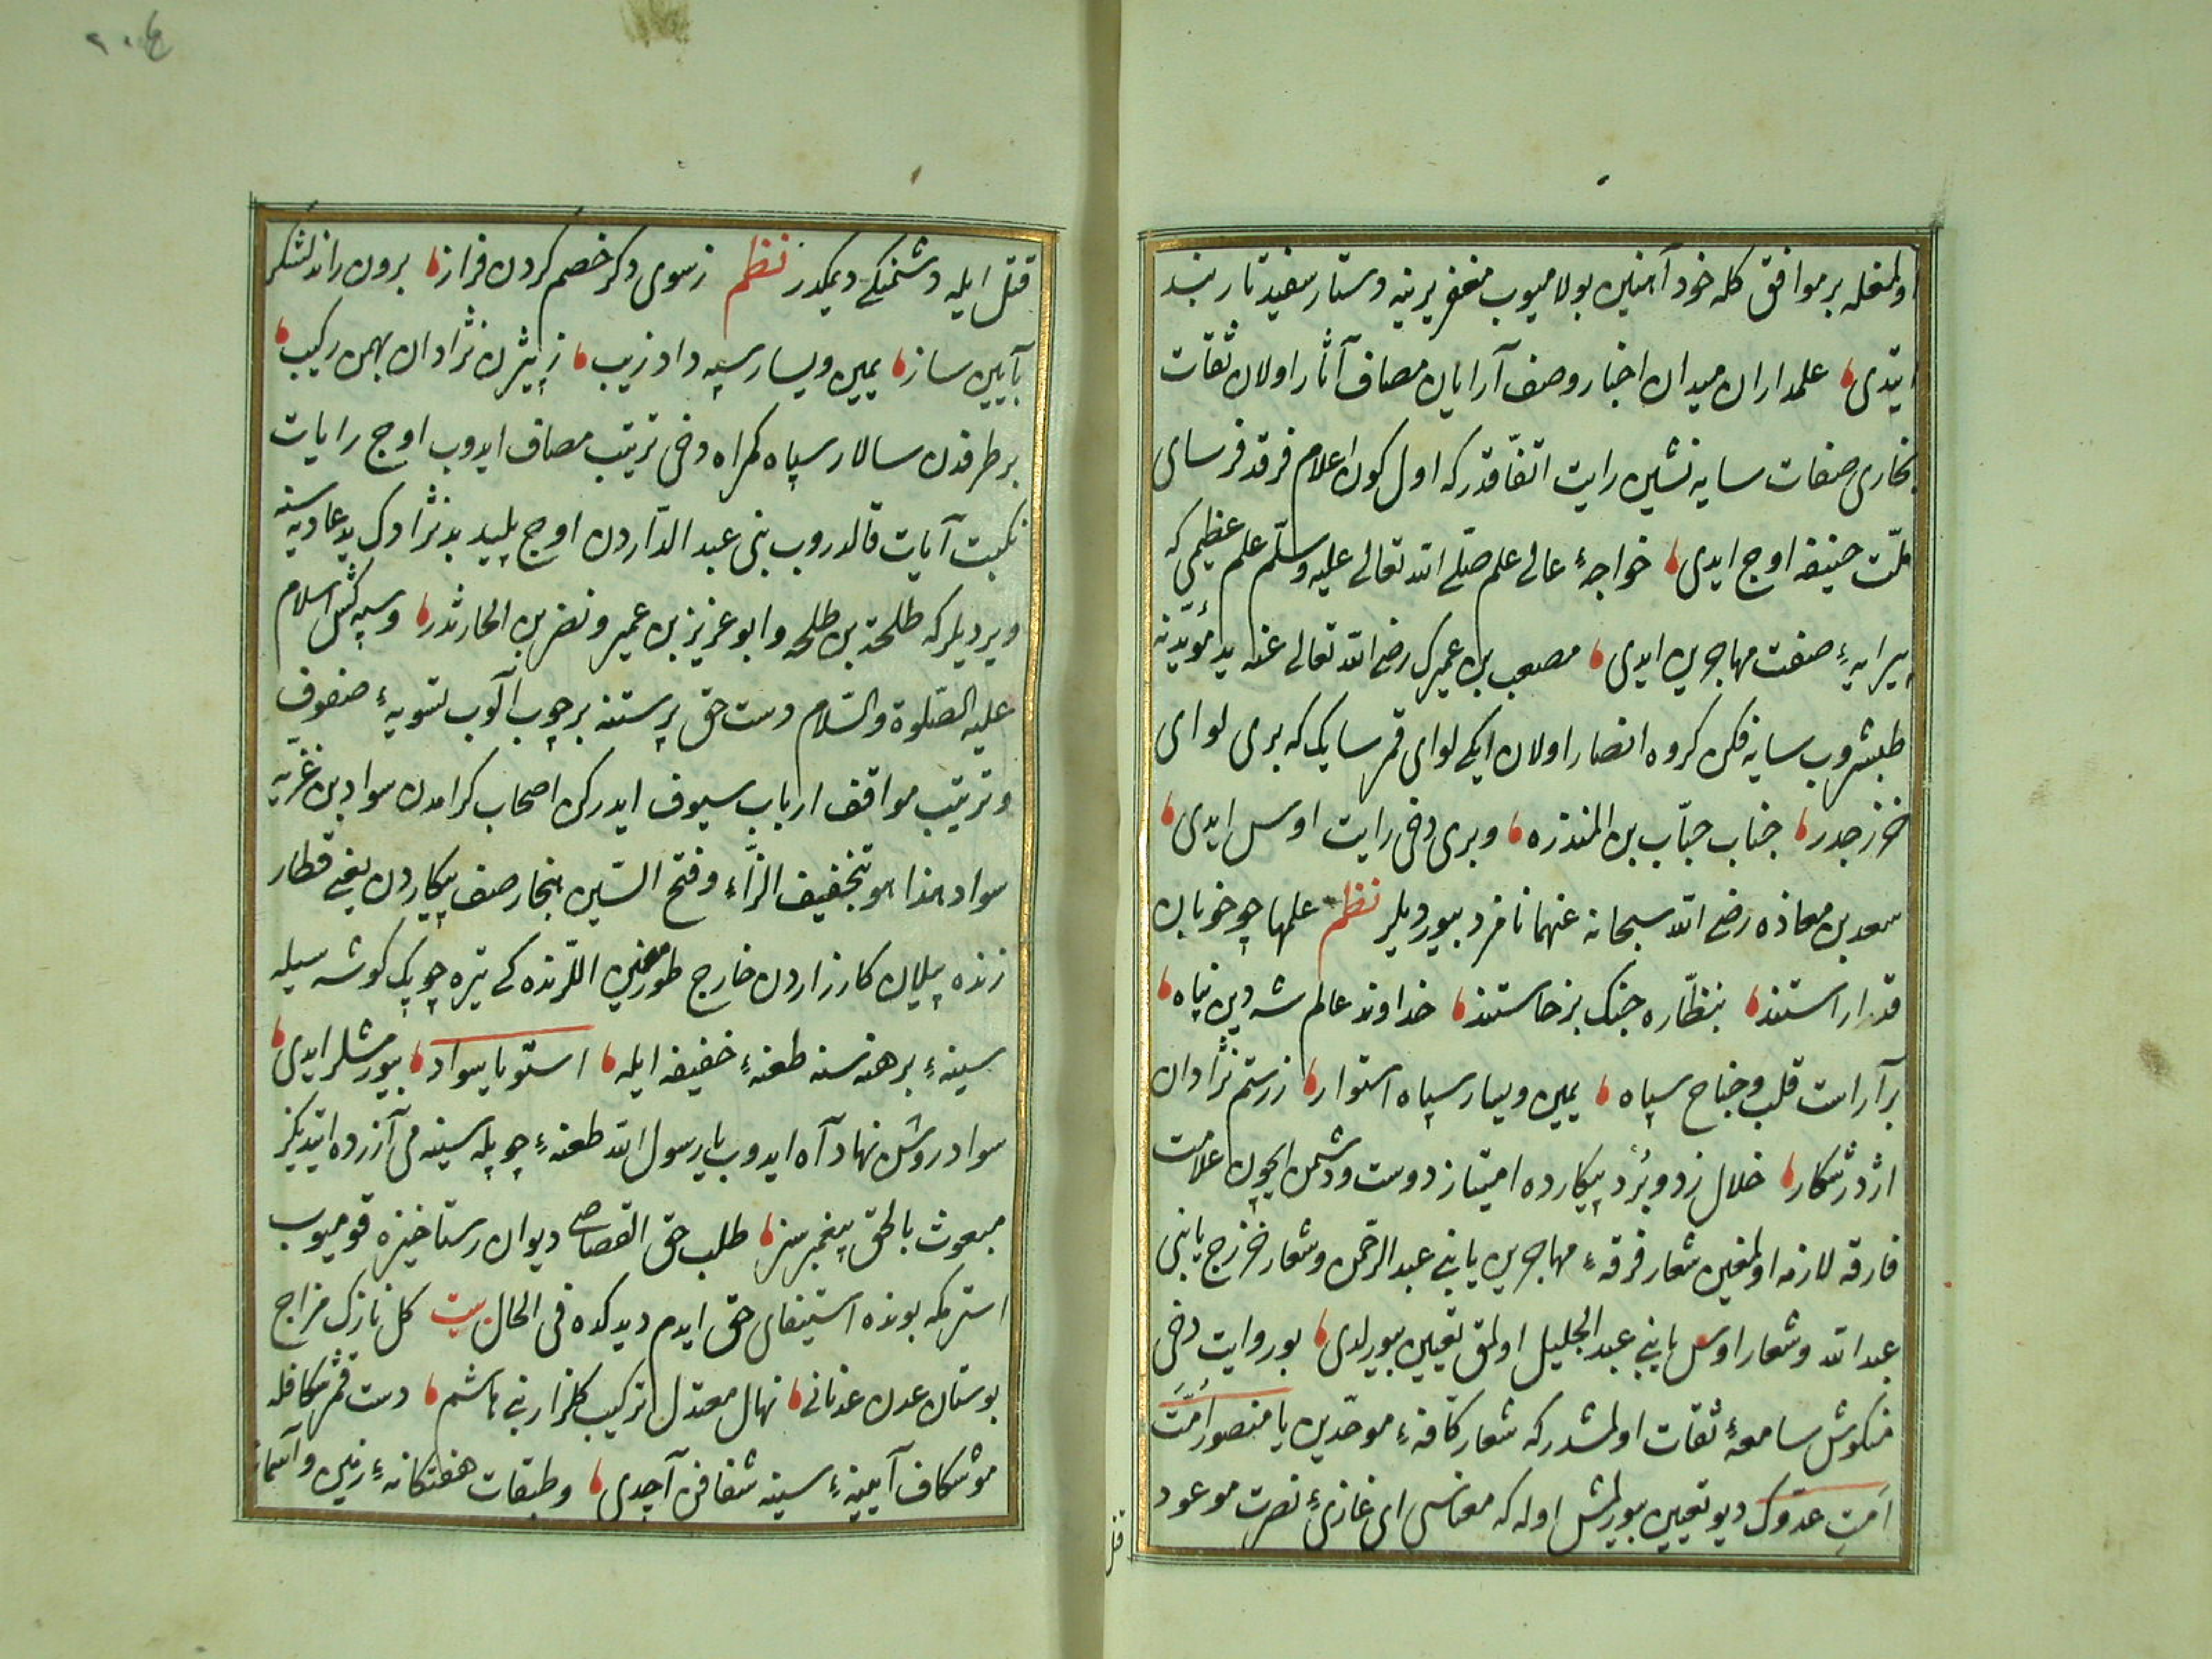 اولمغله بر موافق كله خود آهنين بولاميوب مغفريرينه دستار سفيد تاربند
ايتدى علمداران ميدان اخبار وصف آرايان مصاف آثار اولان ثقات
بخارى صفات سايه نشين رايت اتفاقدر كه اول كون اعلام فرقد فرساى
ملت حنيفه اوج ايدى خواجهٔ عالى علم صلى الله تعالى عليه وسلم علم عظيمى كه
پيرايهٔ صفت مهاجرين ايدى مصعب بن عميرك رضى الله تعالى عنه يد مؤيدينه
طبشروب سايه فكن كروه انصار اولان ايكى لواى قمرسايك كه برى لواى
خزرجدر جناب حباب بن المنذره وبرى دخى رايت اوس ايدى
سعد بن معاذه رضى الله سبحانه عنهما نامزد بيورديلر نظم علمها چو خوبان
قد اراستند بنظاره جنك برخاستند خداوند عالم شه دين پناه
برآراست قلب وجناح سپاه يمين ويسار سپاه استوار ز رستم نژادان
اژدر شكار خلال زد وبرد پيكارده امتياز دوست ودشمن ايچون علامت
فارقه لازمه اولمغين شعار فرقهٔ مهاجرين يا بنى عبد الرحمن وشعار خزرج يا بنى
عبد الله وشعار اوس يا بنى عبد الجليل اولمق تعيين بيورلدى بو روايت دخى
منكوش سامعهٔ ثقات اولمشدر كه شعار كافهٔ موحدين يا منصور امت
امت عدوك ديو تعيين بيورلمش اوله كه معناسى اى غازىٔ نصرت موعود
قتل
٢٠٤
قتل ايله دشمنكى ديمكدر نظم ز سوى دكر خصم كردن فراز برون راند لشكر
بآيين ساز يمين ويسار سپه داد زيب ز بيژن نژادان بهمن ركيب
بر طرفدن سالار سپاه كمراه دخى ترتيب مصاف ايدوب اوج رايات
نكبت آيات قالدروب بنى عبد الداردن اوج پليد بدنژادك يد عاديه سنه
ويرديلر كه طلحة بن طلحه وابو عزيز بن عمير ونضر بن الحارثدر وسپه كش اسلام
عليه الصلوة والسلام دست حق پرستنه بر چوب آلوب تسويهٔ صفوف
وترتيب مواقف ارباب سيوف ايدركن اصحاب كرامدن سواد بن غزيه
سواد هذا هو بتخفيف الراء وفتح السين هنجار صف پيكاردن يعنى قطار
زنده پيلان كارزاردن خارج طورمغين اللرنده كى تيره چوبك كوشه سيله
سينهٔ برهنه سنه طعنهٔ خفيفه ايله استو يا سواد بيورمشلر ايدى
سواد روشن نهاد آه ايدوب يا رسول الله طعنهٔ چوبله سينه مى آزرده ايتديكز
مبعوث بالحق پيغمبرسز طلب حق القصاصى ديوان رستاخيزه قوميوب
استرمكه بونده استيفاى حق ايدم ديدكده فى الحال بيت كل نازك مزاج
بوستان عدن عدنانى نهال معتدل تركيب كلزار بنى هاشم دست قمر شكافله
موشكاف آيينهٔ سينه شفافن آچدى وطبقات هفتكانهٔ زمين وآسمان